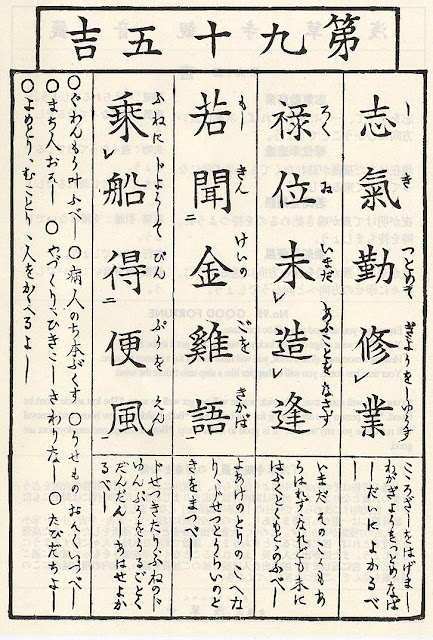 第九十五吉
志氣勤修業
しき つとめて ぎようをしゆうす
こゝろざしをはげまし
わがぎようをつとめなば
しだいによかるべし
禄位未造逢
ろくゐ いまだ あふことをなさず
いまだそのこともあ
らはれずなれども末に
はふくとくもとのふべし
若聞金雞語
もし きんけいの ごを きかば
よあけのとりのこへな
り、じせつとうらいのと
きをまつべし
乗船得便風
ふねにじようじて びんぷうを えん
じせつきたりふねのじ
ゆんぷうをうるごとく
だんだんしあはせよか
るべし
○ぐわんもう叶ふべし ○病人のち本ぶくす ○うせものおそくいづべし
○まち人おそし ○やづくり、ひきこしさわりなし ○たびだちよし
○よめとり、むことり、人をかゝへるよし